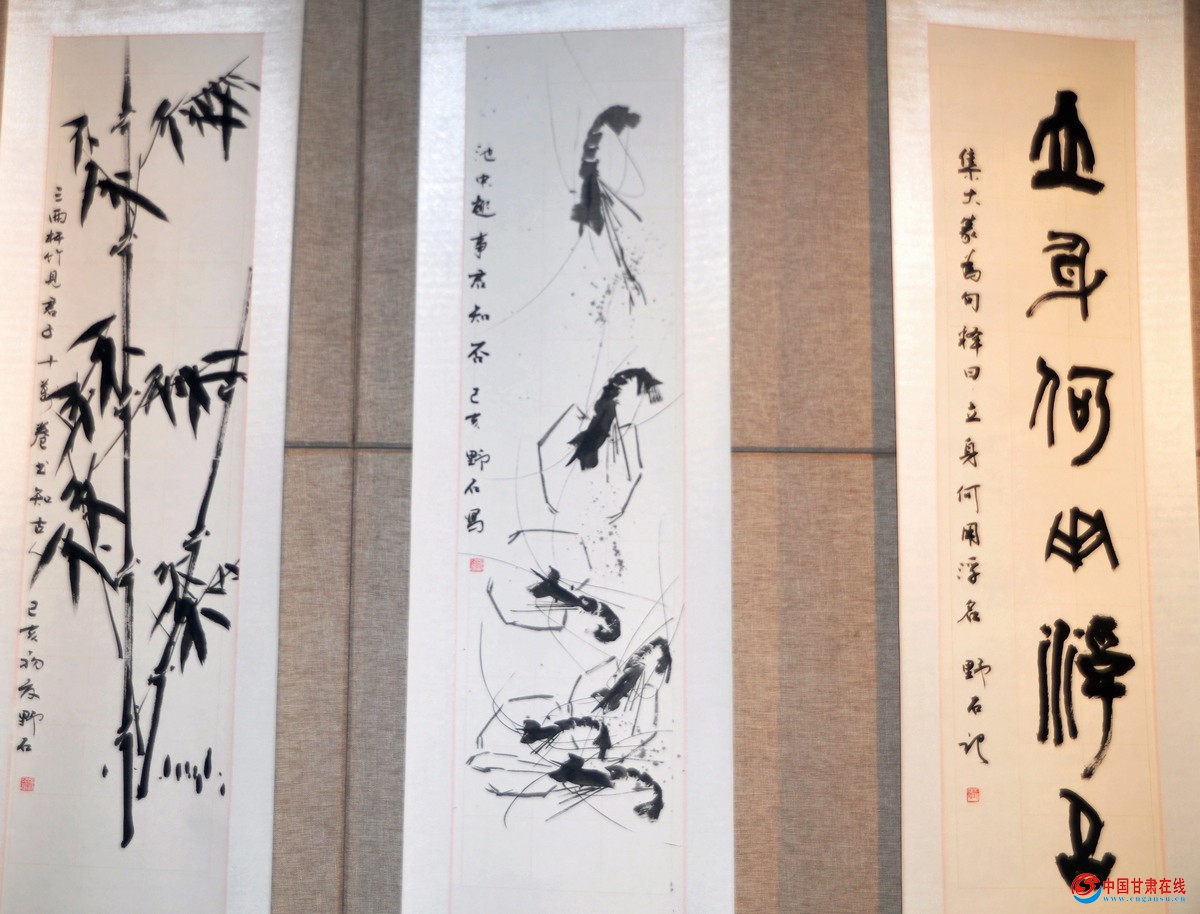 三兩杆竹見君子十萬卷书知古人 己亥初夏野石
池中趣事君知否 己亥野石寫
立身何用浮名
集大篆為句釋曰立身何用浮名 野石记
中国甘肃在线
www.cngansu.cn